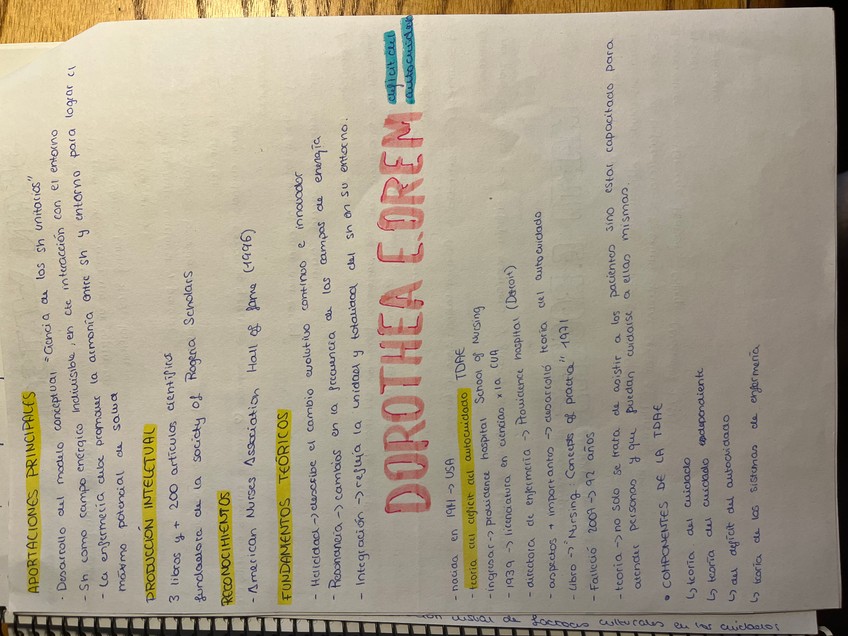 APORTACIONES PRINCIPALES
- Desarrollo del modelo conceptual "Ciencia de los sh unitarios"
- Sh como campo energico indivisible, en cte interacción con el entorno
- La enfermería debe promover la armonía entre sh y entorno para lograr el
máximo potencial de salud
PRODUCCIÓN INTELETUAL
3 libros y + 200 artículos científics
fundadora de la society of Rogena Scholars
RECONOCIMIENTOS
- American Nurses Association Hall of fame (1996)
FUNDAMENTOS TEÓRICOS
- Helicidad -> describe el cambio evolutivo continuo e innovador
- Resonancia -> cambios en la frecuencia de los campos de energía
- Integración -> refleja la unidad y totalidad del sh en su entorno.
DOROTHEA E.OREM déficit del
autocuidado
- nacida en 1911 -> USA
- teoría del déficit del autocuidado TDAE
- ingresar -> providence hospital School of Nursing
- 1939 -> licenciatura en ciencias x la CUA
- directora de enfermería -> Providence hospital (Detroit)
- aspectos + importantes -> desarrolló teoría del autocuidado
- Libro -> "Nursing. Concepts of practia" 1971
- Falleció 2007 -> 92 años
- teoría -> no solo se trata de asistir a los pacientes sino estar capacitado para
atender personas y que puedan cuidarse a ellas mismas.
• COMPONENTES DE LA TDAE
↳ teoría del cuidado
↳ teoría del cuidado dependiente
↳ del déficit del autocuidado
↳ teoría de los sistemas de enfermería
usual de factores culturales en los cuidados